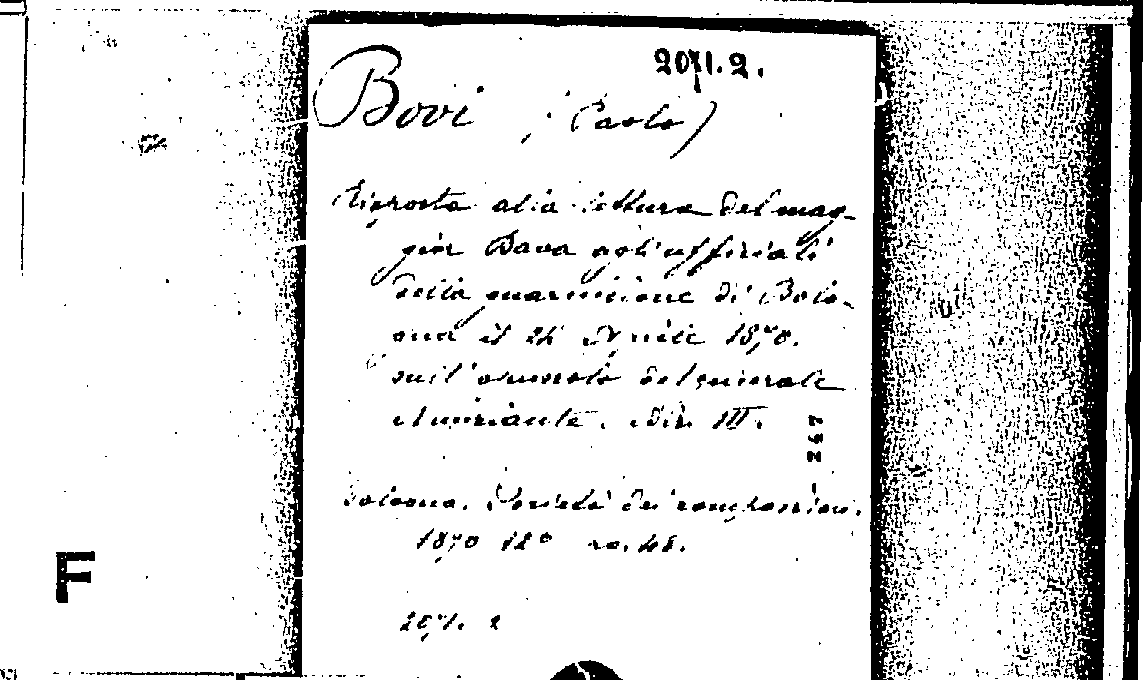 2071.2.
Bovi (Paolo)
Risposta alla lettura del mag-
gior Bava agli uffiziali
della guarnigione di Bolo-
gna il 24 Aprile 1870.
sull'opuscolo del generale
Div. III.
247
Bologna. Società dei compositori.
1870 12°
2071. 2
F